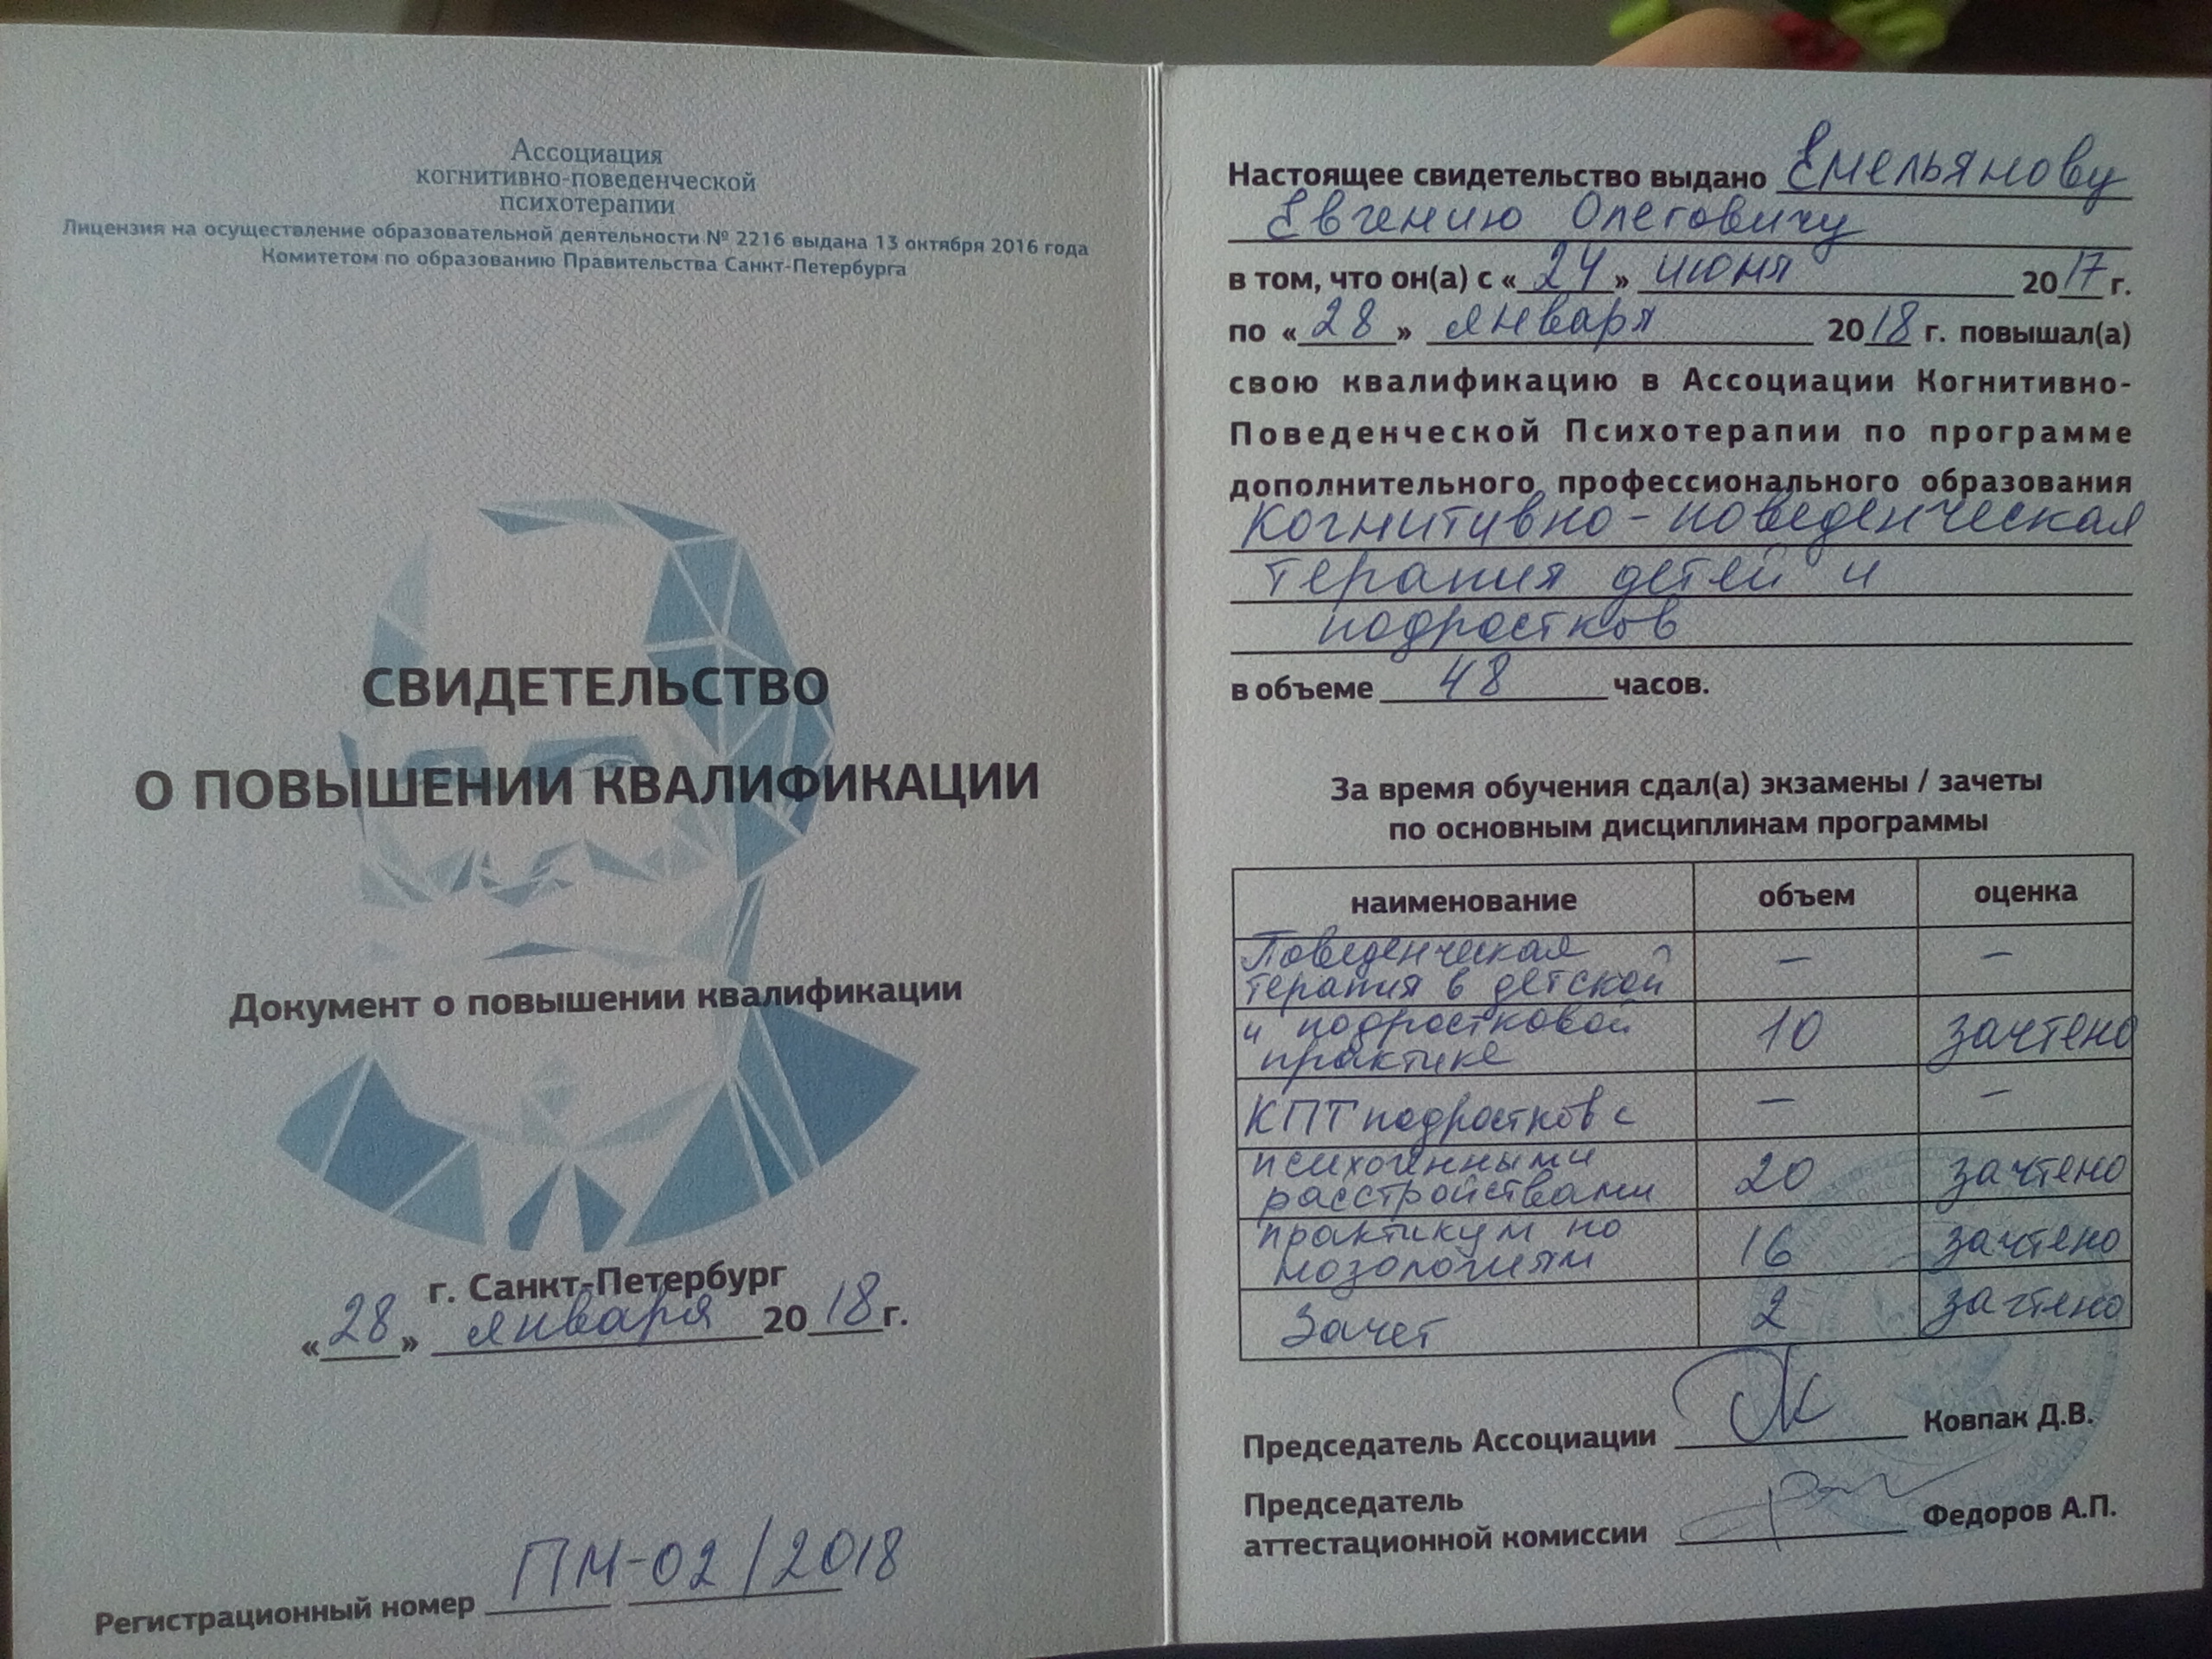 Ассоциация
когнитивно-поведенческой
психотерапии
Лицензия на осуществление образовательной деятельности № 2216 выдана 13 октября 2016 года
Комитетом по образованию Правительства Санкт-Петербурга
СВИДЕТЕЛЬСТВО
О ПОВЫШЕНИИ КВАЛИФИКАЦИИ
Документ о повышении квалификации
г. Санкт-Петербург
«28» января 2018 г.
Регистрационный номер ПМ-02/2018
Настоящее свидетельство выдано Емельянову
Евгению Олеговичу
в том, что он(а) с «24» июня 2017 г.
по «28» января 2018 г. повышал(а)
свою квалификацию в Ассоциации Когнитивно-
Поведенческой Психотерапии по программе
дополнительного профессионального образования
Когнитивно-поведенческая
терапия детей и
подростков
в объеме 48 часов.
За время обучения сдал(а) экзамены / зачеты
по основным дисциплинам программы
наименование объем оценка
Поведенческая
терапия в детской — —
и подростковой
практике 10 зачтено
КПТ подростков с — —
психогенными
расстройствами 20 зачтено
практикум по
нозологиям 16 зачтено
Зачет 2 зачтено
Председатель Ассоциации Ковпак Д.В.
Председатель
аттестационной комиссии Федоров А.П.